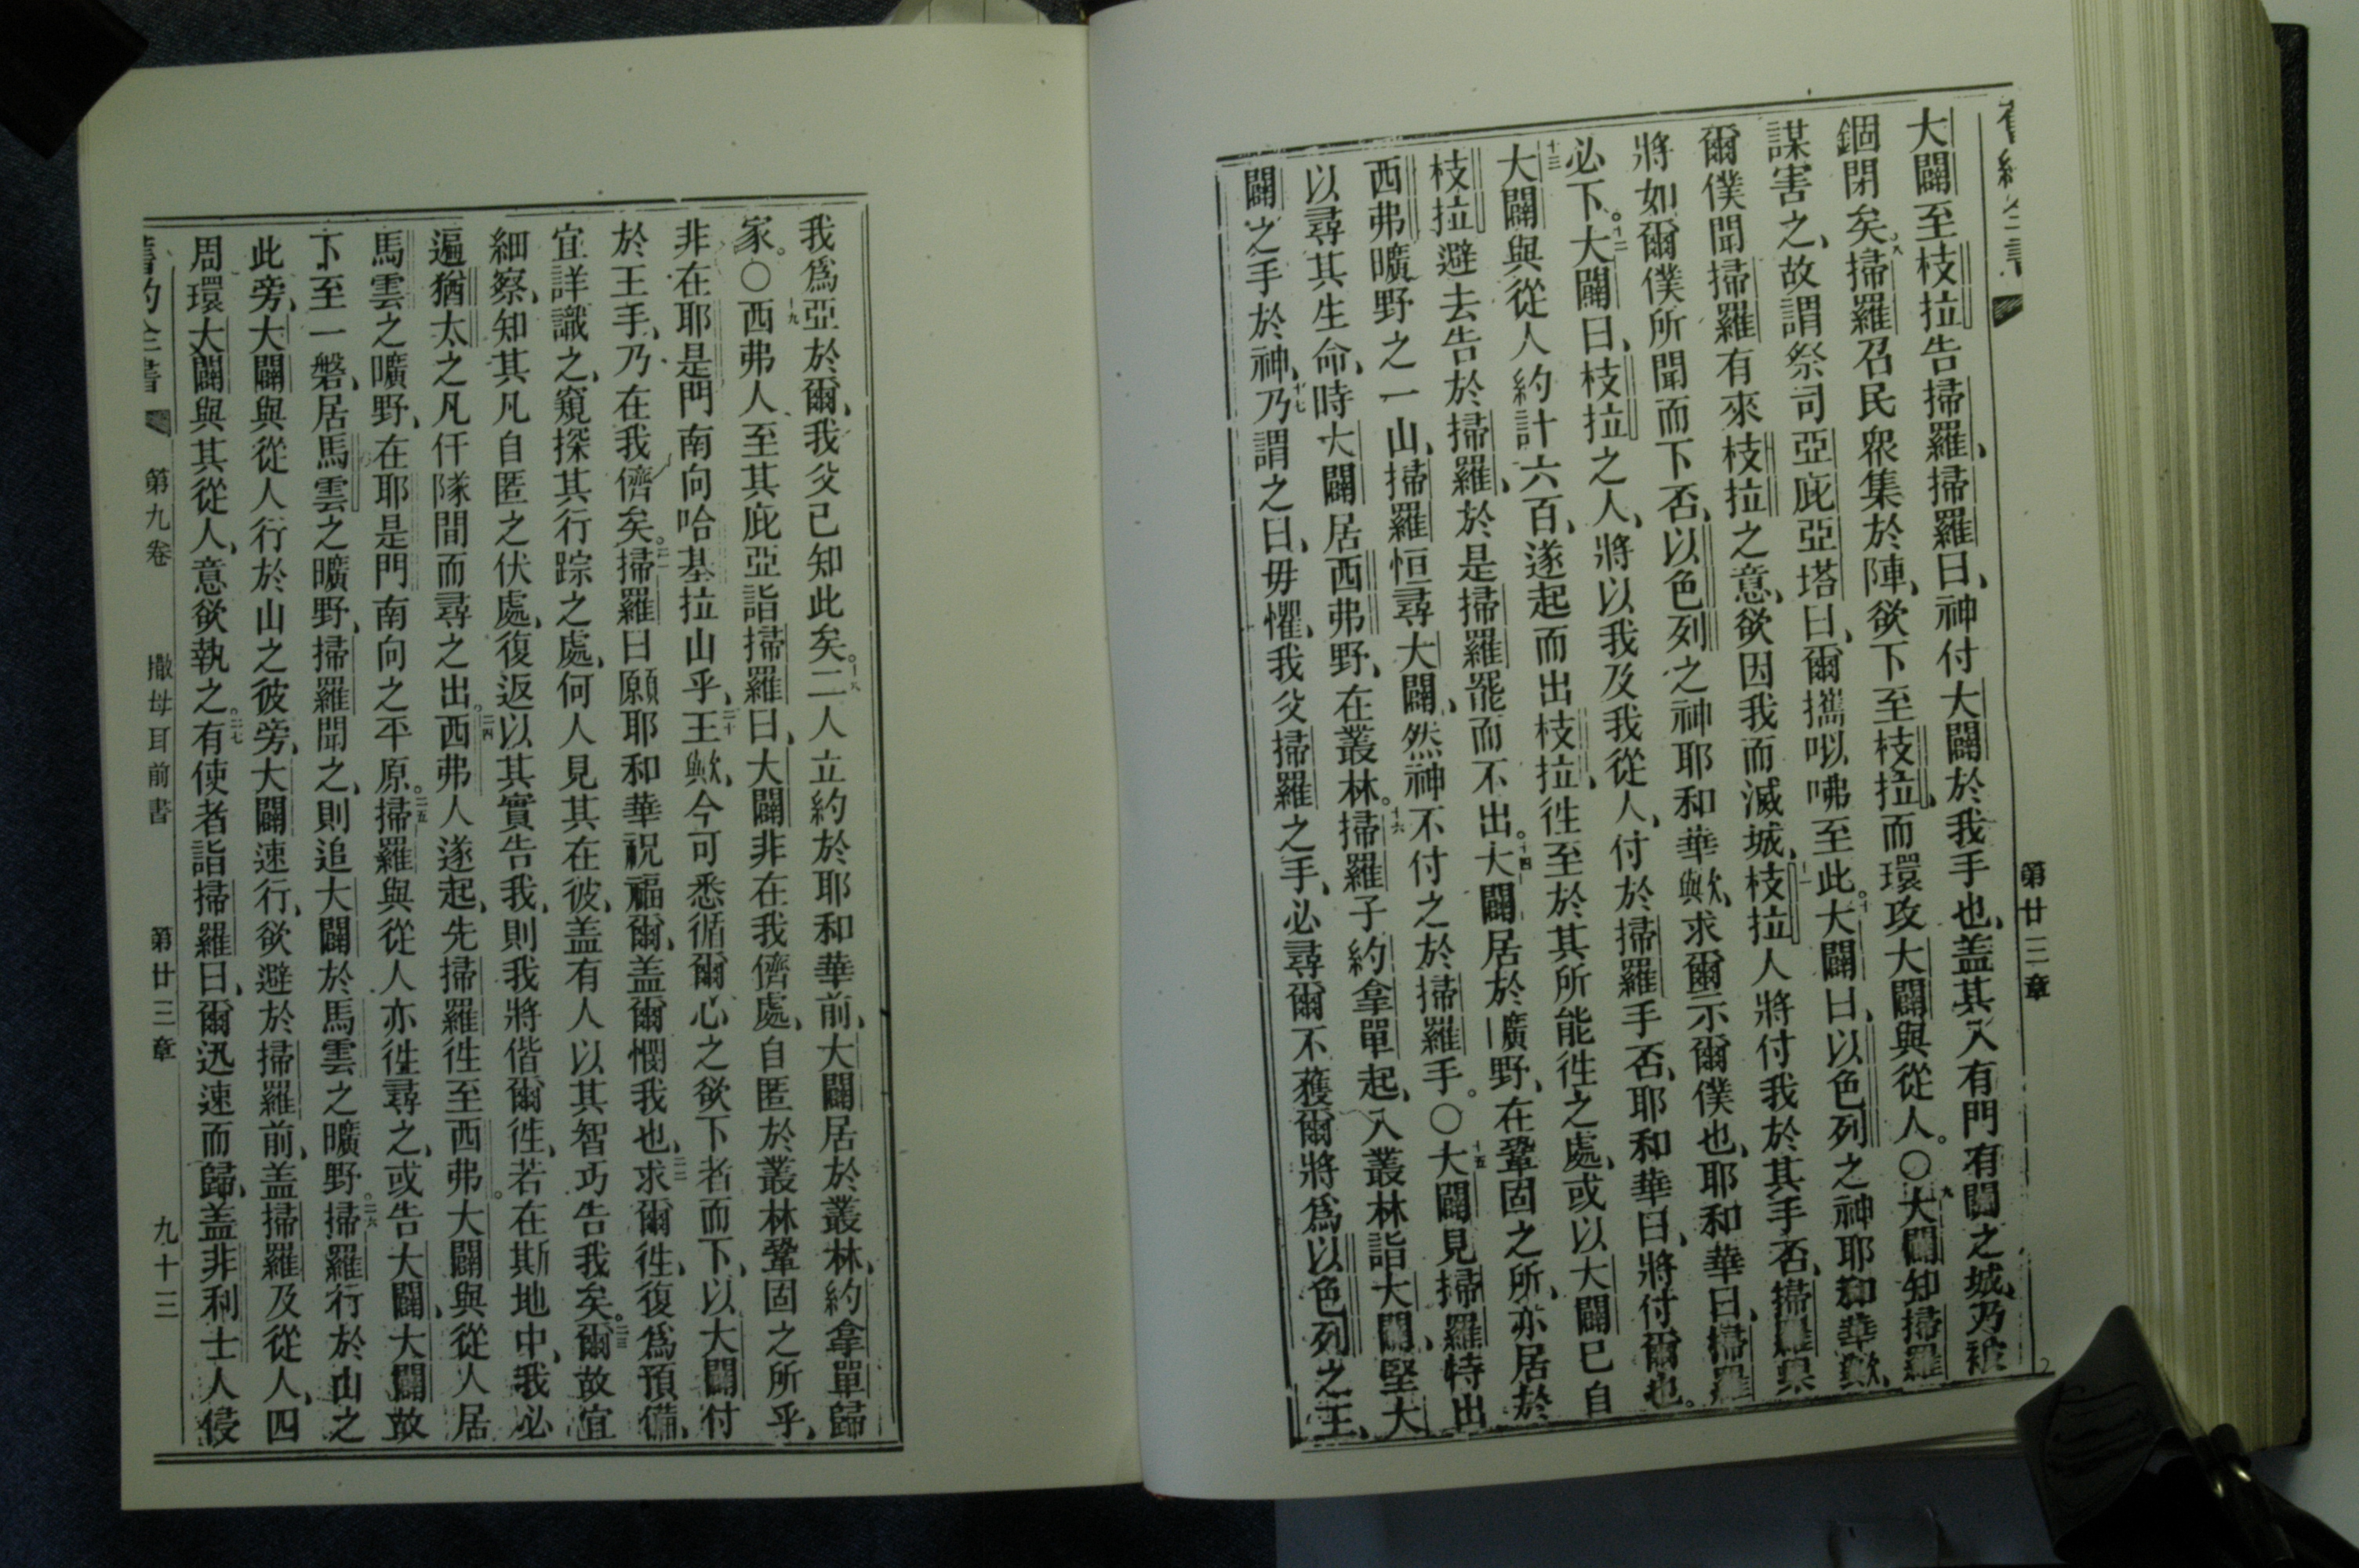 第廿三章
大闢至枝拉告掃羅、掃羅曰、神付大闢於我手也、盖其入有門有關之城、乃被
錮閉矣。八掃羅召民衆集於陣、欲下至枝拉、而環攻大闢與從人。○九大闢知掃羅
謀害之、故謂祭司亞庇亞塔曰、爾攜㕽咈至此。十大闢曰、以色列之神耶和華歟、
爾僕聞掃羅有來枝拉之意、欲因我而滅城、十一枝拉人將付我於其手否、掃羅果
將如爾僕所聞而下否、以色列之神耶和華歟、求爾示爾僕也、耶和華曰、掃羅
必下。十二大闢曰、枝拉之人、將以我及我從人、付於掃羅手否、耶和華曰、將付爾也。
十三大闢與從人約計六百、遂起而出枝拉、徃至於其所能徃之處、或以大闢已自
枝拉避去告於掃羅、於是掃羅罷而不出。十四大闢居於曠野、在鞏固之所、亦居於
西弗曠野之一山、掃羅恒尋大闢、然神不付之於掃羅手。○十五大闢見掃羅特出
以尋其生命、時大闢居西弗野、在叢林。十六掃羅子約拿單起、入叢林詣大闢、堅大
闢之手於神、十七乃謂之曰、毋懼、我父掃羅之手、必尋爾不獲、爾將爲以色列之王、
我爲亞於爾、我父已知此矣。十八二人立約於耶和華前、大闢居於叢林、約拿單歸
家。○十九西弗人至其庇亞詣掃羅曰、大闢非在我儕處、自匿於叢林鞏固之所乎、
非在耶是門南向哈基拉山乎、二十王歟、今可悉循爾心之欲下者而下、以大闢付
於王手、乃在我儕矣。二一掃羅曰願耶和華祝福爾、盖爾憫我也、二二求爾徃、復爲預備、
宜詳識之、窺探其行踪之處、何人見其在彼、盖有人以其智巧告我矣。二三爾故宜
細察、知其凡自匿之伏處、復返以其實告我、則我將偕爾徃、若在斯地中、我必
遍猶太之凡仟隊間而尋之出。二四西弗人遂起、先掃羅徃至西弗。大闢與從人居
馬雲之曠野、在耶是門南向之平原。二五掃羅與從人亦徃尋之、或告大闢、大闢故
下至一磐、居馬雲之曠野、掃羅聞之、則追大闢於馬雲之曠野。二六掃羅行於山之
此旁、大闢與從人行於山之彼旁、大闢速行、欲避於掃羅前、盖掃羅及從人、四
周環大闢與其從人、意欲執之。二七有使者詣掃羅曰、爾迅速而歸、盖非利士人侵
第九卷 撒母耳前書 第廿三章 九十三